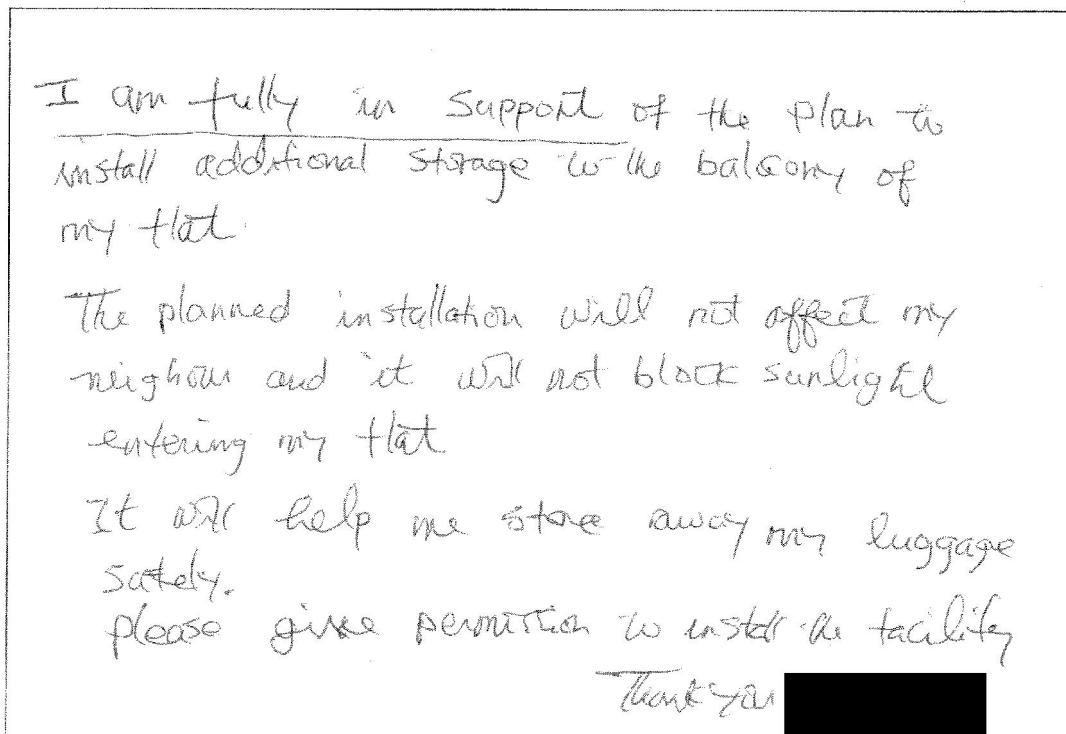 I am fully in support of the plan to
install additional storage to the balcony of
my flat.
The planned installation will not affect my
neighour and it will not block sunlight
entering my flat
It will help me store away my luggage
safely.
please give permission to install the facility
Thank you